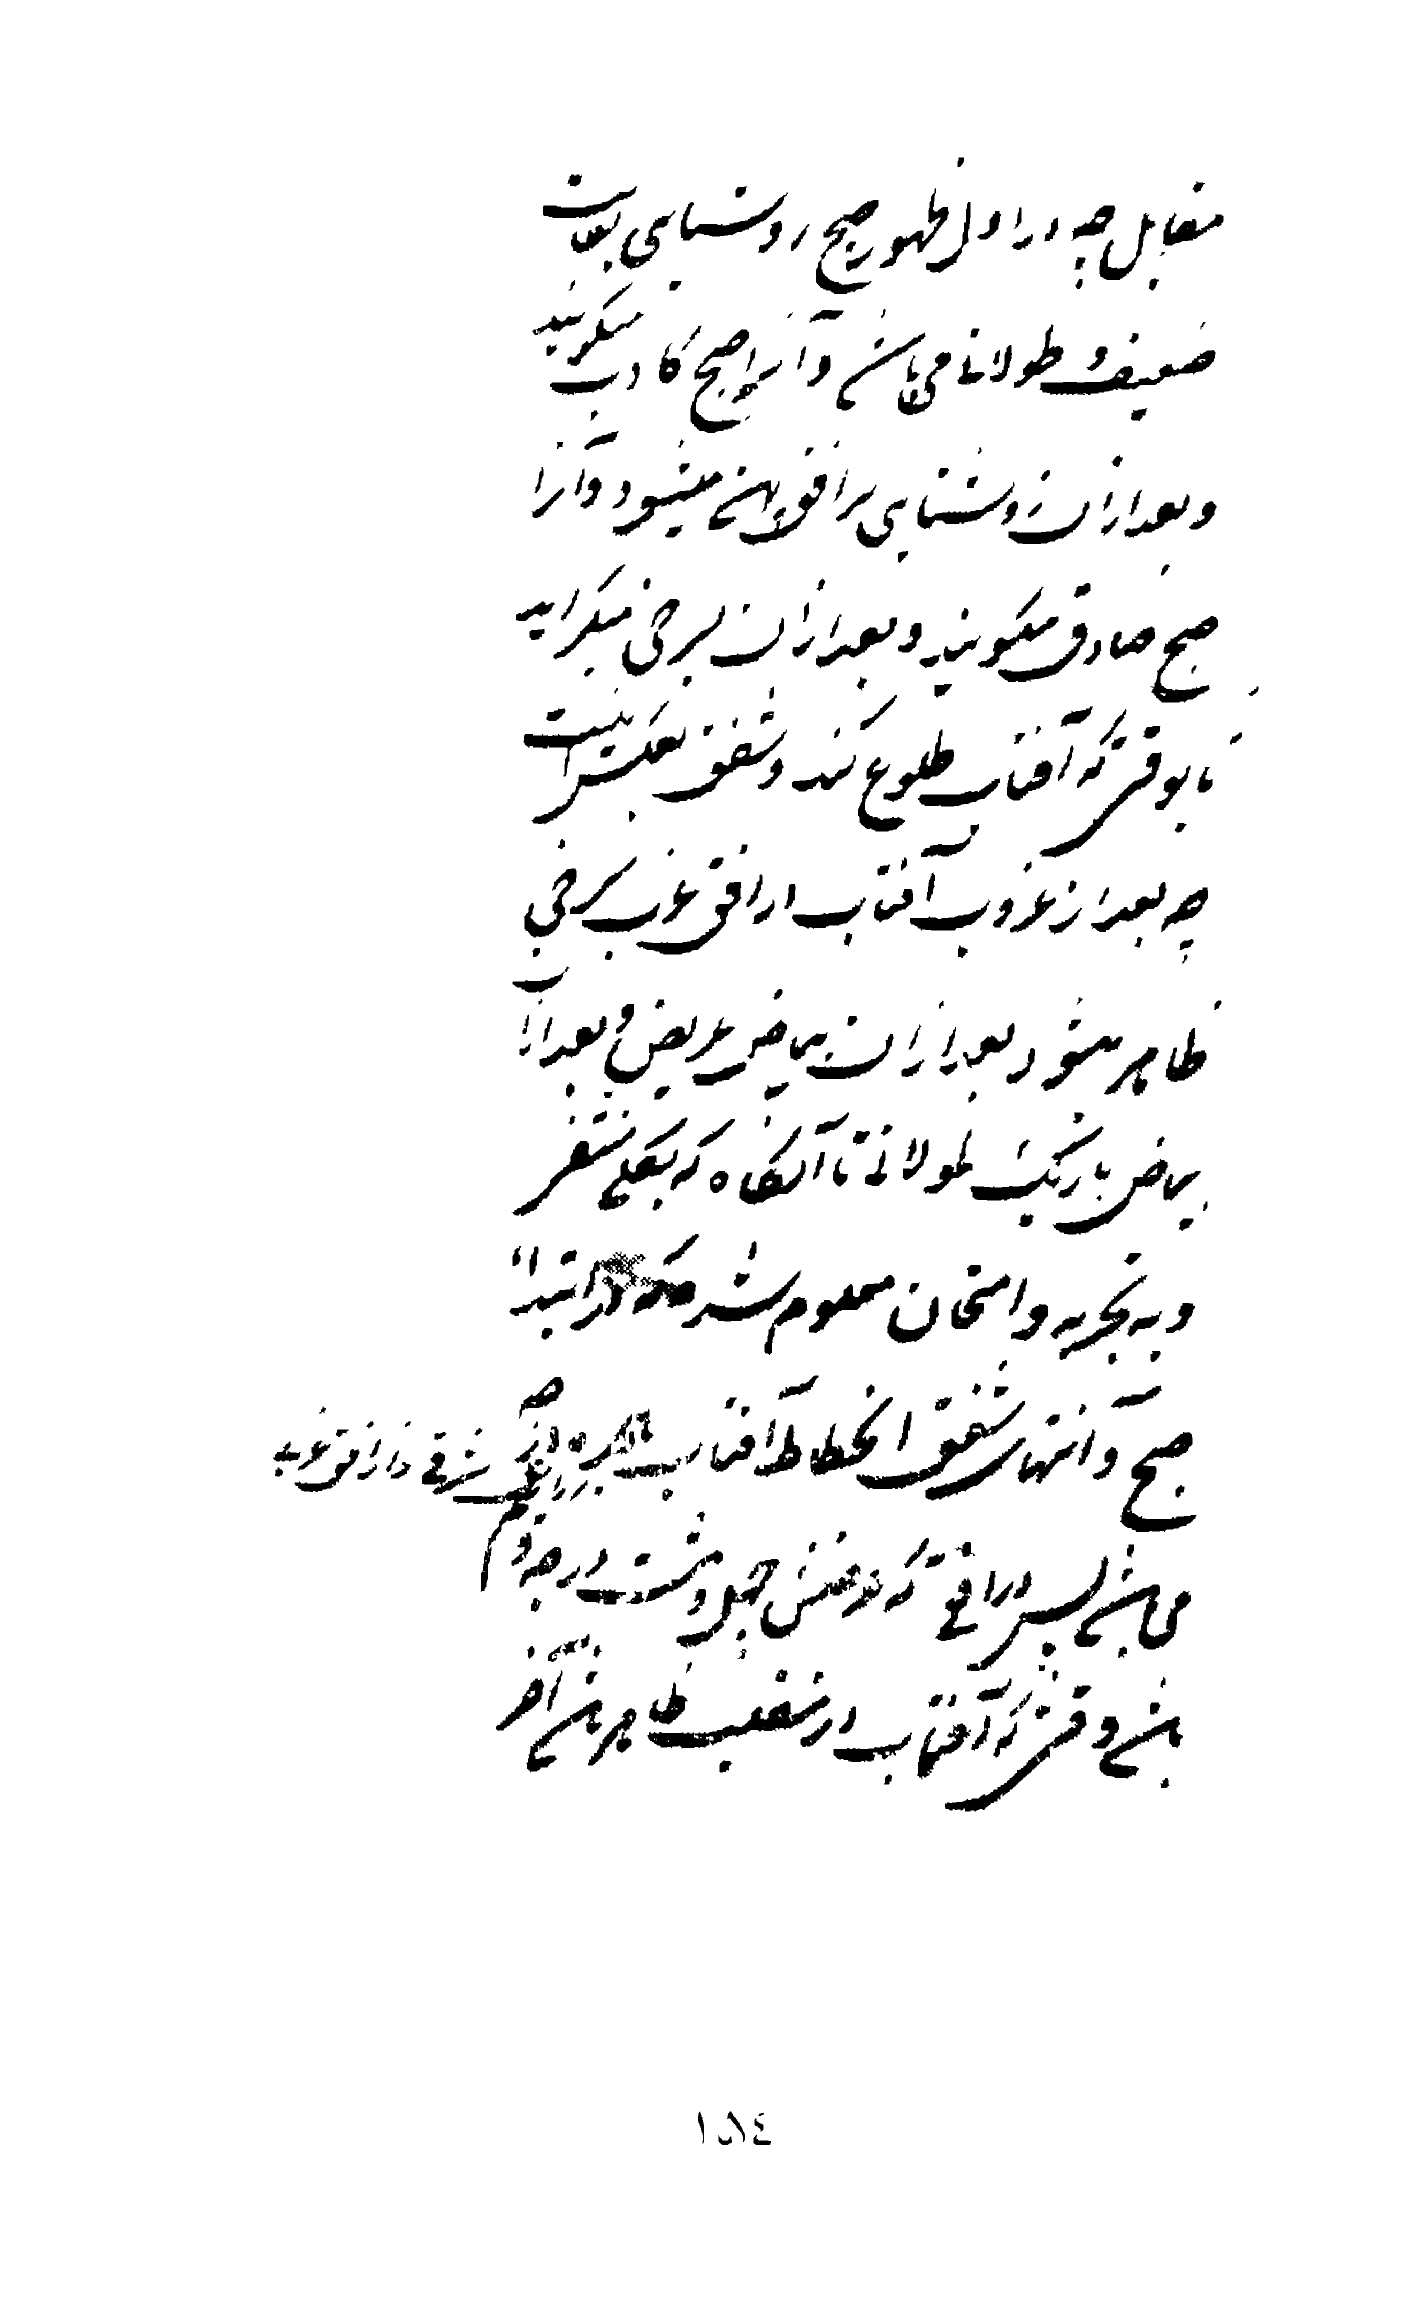 مقابل چه در اول ظهور صبح روشنایی بغایت
ضعیف و طولانی می باشد و آنرا صبح کاذب میگویند
و بعد از ان روشنایی بر افق پهن میشود و آنرا
صبح صادق میگویند و بعد از ان بسرخی میگراید
تا بوقتی که آفتاب طلوع کند و شفق بعکس اینست
چه بعد از غروب آفتاب در افق غرب سرخی
ظاهر میشود بعد از ان بیاض عریض و بعد از آن
بیاض باریک طولانی تا آنگاه که بکلی
و به تجربه و امتحان معلوم شد که در ابتداء
صبح و انتهای شفق انحطاط آفتاب از افق غربی
می باشد پس در افقی که عرضش چهل و هشت درجه و نیم
باشد وقتی که آفتاب در منقلب ظاهر باشد آخر
١٥٤